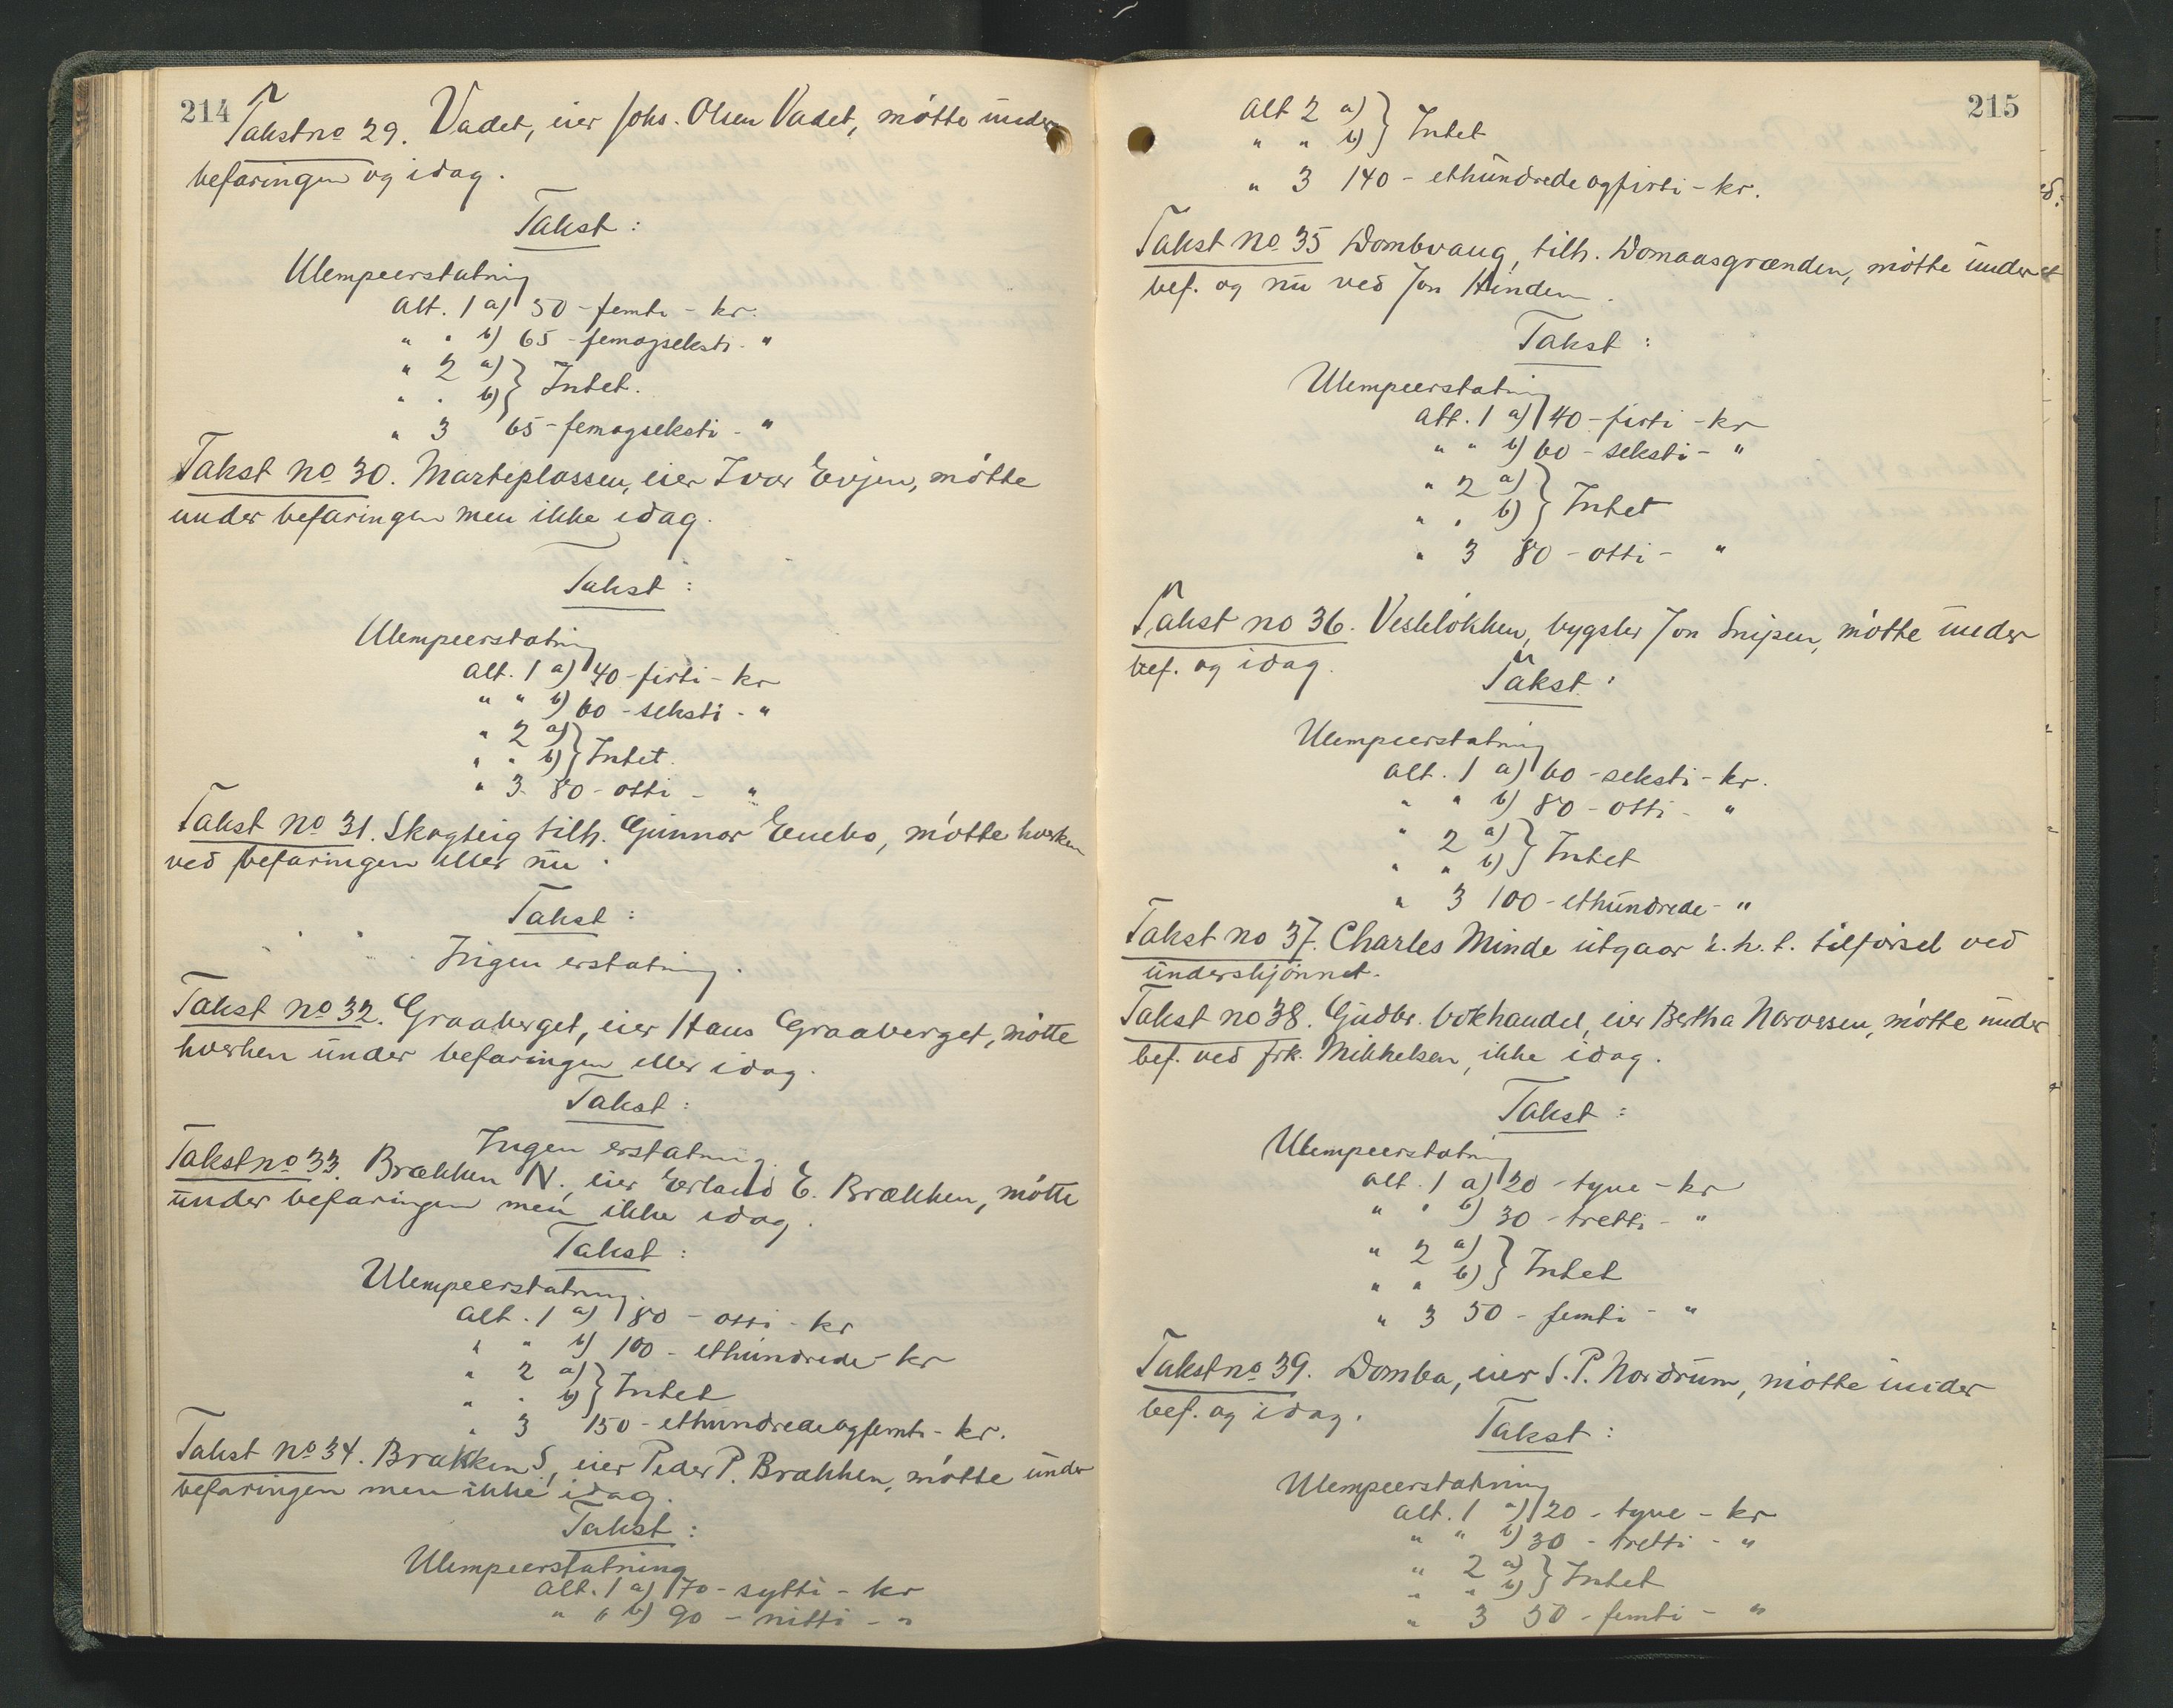 214
Takst no 29. Vadet, eier Johs. Olsen Vadet, møtte under
befaringen og idag.
Takst:
Ulempeerstatning
Alt. 1 a) 50 - femti - kr.
" " b) 65 - femogseksti - "
" 2 a)
" " b) } Intet.
" 3 65 - femogseksti - "
Takst no 30. Marteplassen, eier Ivar Evjen, møtte
under befaringen men ikke idag.
Takst:
Ulempeerstatning
Alt. 1 a) 40 - firti - kr
" " b) 60 - seksti - "
" 2 a)
" " b) } Intet.
" 3 80 - otti - "
Takst no 31. Skogteig tilh. Gunnar Enebo, møtte hverken
ved befaringen eller nu.
Takst:
Ingen erstatning.
Takst no 32. Graaberget, eier Hans Graaberget, møtte
hverken under befaringen eller idag.
Takst:
Ingen erstatning.
Takst no 33. Brækken N., eier Erland E. Brækken, møtte
under befaringen men ikke idag.
Takst:
Ulempeerstatning.
Alt. 1 a) 80 - otti - kr
" " b) 100 - ethundrede - kr
" 2 a)
" " b) } Intet
" 3 150 - ethundredeogfemti - kr.
Takst no 34. Brækken S, eier Peder P. Brækken, møtte under
befaringen men ikke idag.
Takst:
Ulempeerstatning
Alt. 1 a) 70 - sytti - kr
" " b) 90 - nitti - "
215
Alt 2 a)
" " b) } Intet
" 3 140 - ethundredeogfirti - kr.
Takst no 35 Dombvang, tilh. Domaasgrænden, møtte under
bef. og nu ved Jon Hinden.
Takst:
Ulempeerstatning
Alt. 1 a) 40 - firti - kr
" " b) 60 - seksti - "
" 2 a)
" " b) } Intet
" 3 80 - otti - "
Takst no 36. Vesleløkken, bygsler Jon Snipen, møtte under
bef. og idag.
Takst:
Ulempeerstatning
Alt. 1 a) 60 - seksti - kr.
" " b) 80 - otti - "
" 2 a)
" " b) } Intet
" 3 100 - ethundrede - "
Takst no 37. Charles Minde utgaar i. h. t. tilførsel ved
underskjønnet.
Takst no 38. Gudbr. bokhandel, eier Bertha Narvesen, møtte under
bef. ved frk. Mikkelsen, ikke idag.
Takst:
Ulempeerstatning
Alt. 1 a) 20 - tyve - kr
" " b) 30 - tretti - "
" 2 a)
" " b) } Intet
" 3 50 - femti - "
Takst no 39. Domba, eier S. P. Nordrum, møtte under
bef. og idag.
Takst:
Ulempeerstatning
Alt. 1 a) 20 - tyve - kr
" " b) 30 - tretti - "
" 2 a)
" " b) } Intet
" 3 50 - femti - "